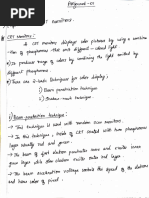 Assignment - 01
CRT Monitors.
CRT Monitors :
A CRT monitor displays color pictures by using a combina-
tion of phosphorous that emit different - colored light
It produce range of colors by combining the emitted light by
different phosphorous.
There are 2-basic techniques for color display :
1) Beam-penetration technique
2) Shadow-mask technique.
1) Beam-penetration technique :
This technique is used with random scan monitors.
In this technique, inside of CRT coated with two phosphorous
layers usually red and green.
The beam of fast electron penetrates outer and excites inner
green layer while slow electron excites outer red layer.
The beam acceleration voltage controls the speed of the electrons
and hence color of pixel.